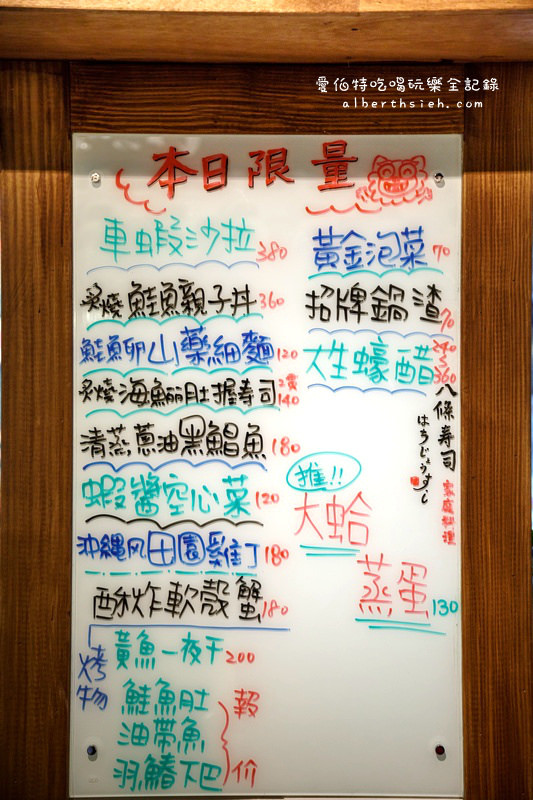 愛伯特吃喝玩樂全記錄
alberthsieh.com
本日限量
車蝦沙拉 380
炙燒鮭魚親子丼 360
鮭魚卵山藥細麵 120
炙燒海鱺魚肚握壽司 2貫 140
清蒸蔥油黑鯧魚 180
蝦醬空心菜 120
沖繩风田園雞丁 180
酥炸軟殼蟹 180
烤物
黃魚一夜干 200
鮭魚肚
油帶魚
羽鰆下巴
報价
黃金泡菜 70
招牌鍋渣 70
大生蠔醋 240~360
八條壽司
はちじょうすし
家庭料理
推!!
大蛤
蒸蛋 130